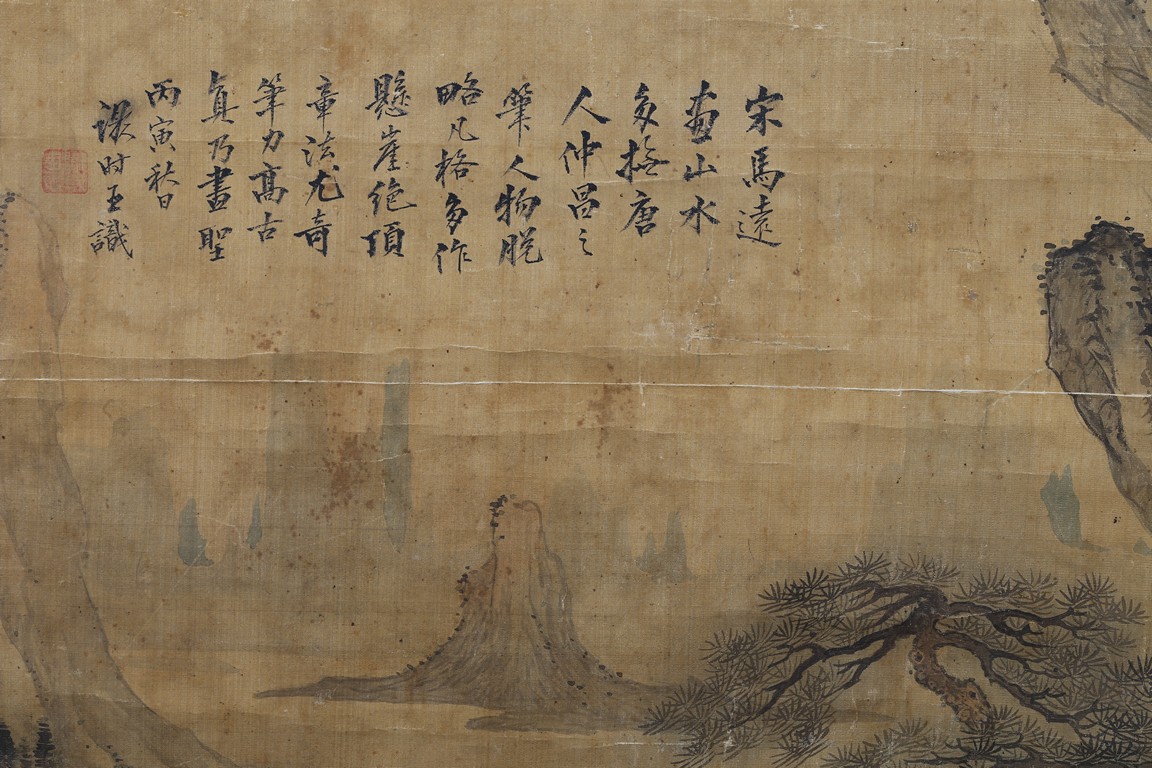 宋馬遠
畫山水
多撫唐
人仲昌之
筆人物脱
略凡格多作
懸崖絶頂
章法尤奇
筆力高古
真乃畫聖
丙寅秋日
時五識